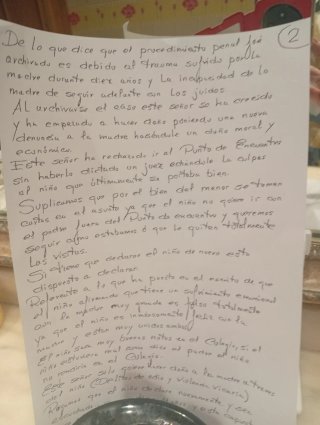 2
De lo que dice que el procedimiento penal fué
archivado es debido al trauma sufrido por la
madre durante diez años y La incapacidad de la
madre de seguir adelante con Los juidos.
AL archivarse el caso este señor se ha crecido
y ha empezado a hacer daño poniendo una nueva
denuncia a la madre haciéndole un daño moral y
económico.
Este señor ha rechazado ir al Punto de Encuentro
sin haberlo dictado un juez echandole La culpa
al niño que últimamente se portaba bien.
Suplicamos que por el bien del menor se tomen
cartas en el asunto ya que el niño no quiere ir con
el padre fuera del Punto de encuentro y queremos
seguir como estabamos ó que le quiten totalmente
Las visitas.
Si tiene que declarar el niño de nuevo esta
dispuesto a declarar.
Referente a lo que ha puesto en el escrito de que
el niño afirmando que tiene un sufrimiento emocional
con la madre muy grande es falso totalmente
ya que el niño es inmensamente feliz con la
mamá y estan muy unidos ambos
El niño saca muy buenas notas en el Colegio, si el
niño estuviera mal como dice el padre el niño
no rendiría en el Colegio.
Este señor solo quiere hacer daño a la madre a traves
del niño (Delitos de odio y violencia vicaria)
que el niño declare nuevamente y sea